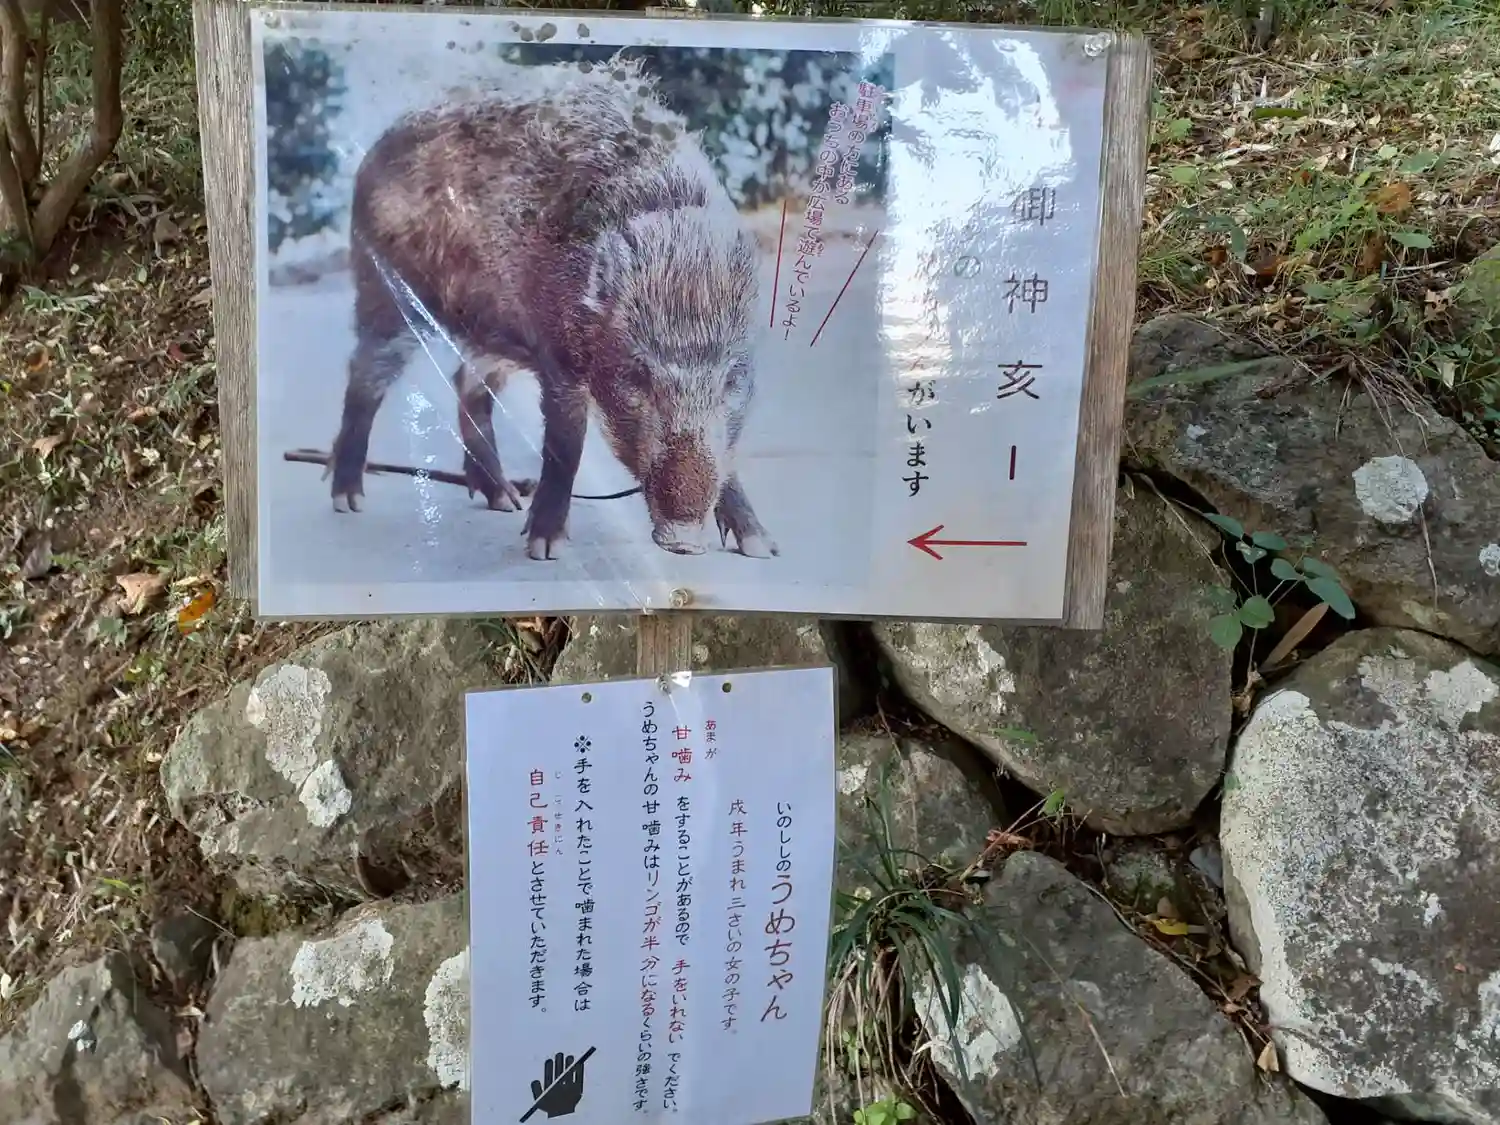 御神亥ー
の
んがいます
駐車場の方にある
おうちの中か広場で遊んでいるよ！
いのししのうめちゃん
戌年うまれ三さいの女の子です。
あまが
甘噛みをすることがあるので 手をいれない でください。
うめちゃんの甘噛みはリンゴが半分になるくらいの強さです。
※手を入れたことで噛まれた場合は
じこせきにん
自己責任とさせていただきます。